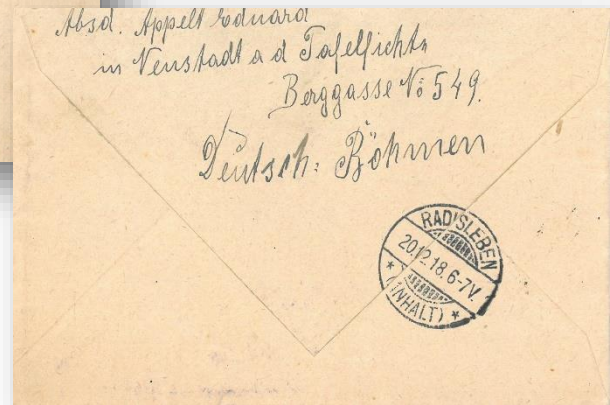 Absd. Appelt Eduard
in Neustadt a d Tafelfichte
Berggasse No 549.
Deutsch: Böhmen
RADISLEBEN
20.12.18.6-7V.
* (ANHALT) *